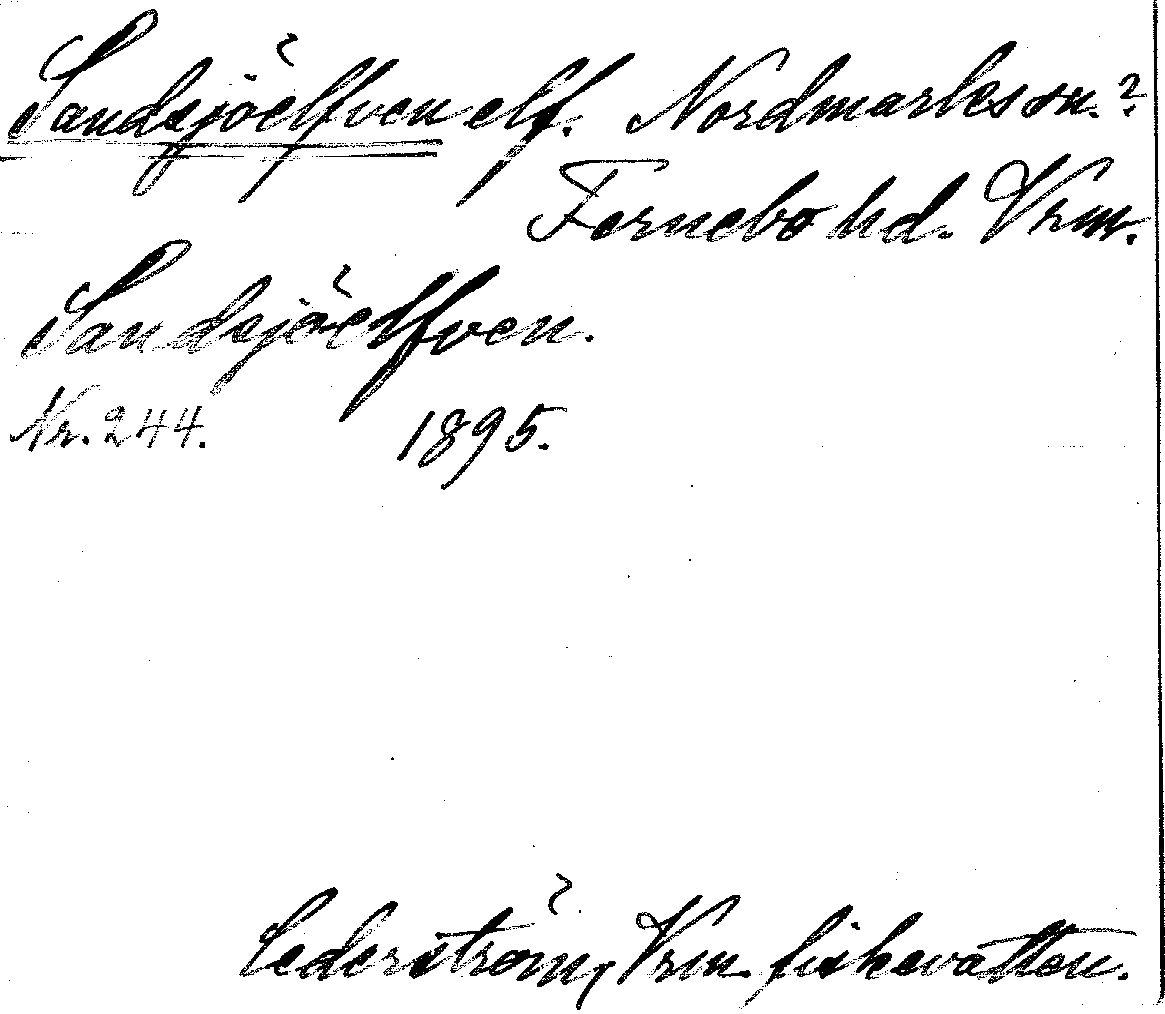 Sandsjöelfven elf. Nordmarks sn.?
Fernebo hd. Vrm.
Sandsjöelfven.
Nr. 244. 1895.
Cederström, Vrm. fiskevatten.